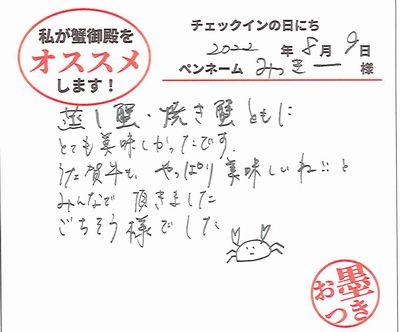 私が蟹御殿を
オススメ
します！
チェックインの日にち
2022年8月9日
ペンネーム みっきー 様
蒸し蟹・焼き蟹ともに
とても美味しかったです。
佐賀牛も、やっぱり美味しいね!!と
みんなで頂きました
ごちそう様でした
墨
おつき